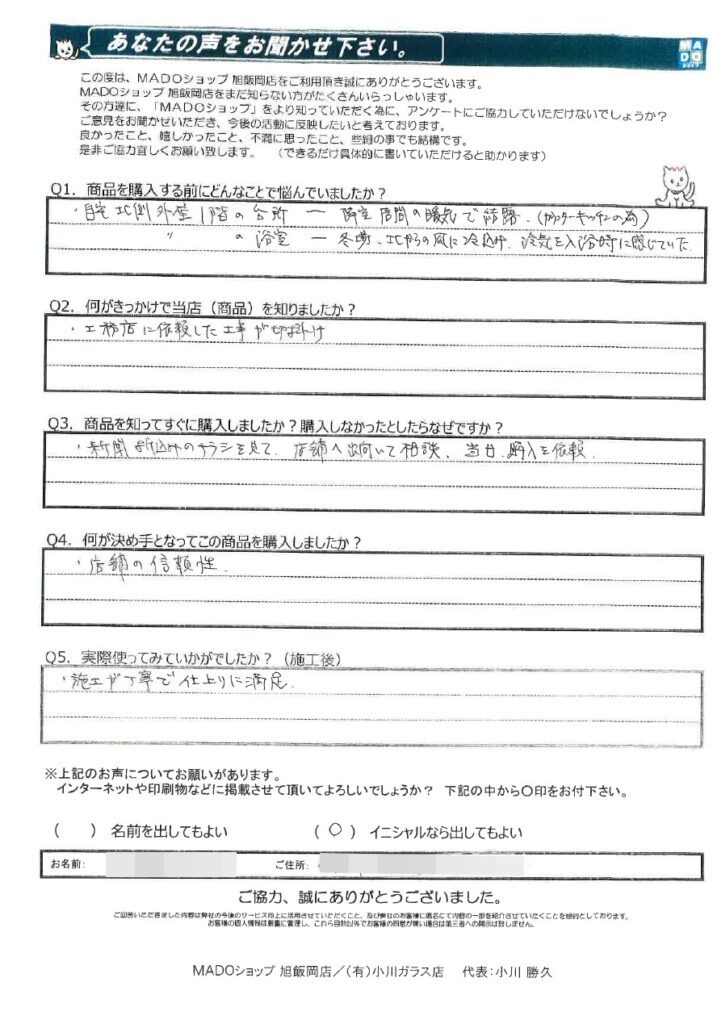 あなたの声をお聞かせ下さい。
MADO
ショップ
この度は、MADOショップ 旭飯岡店をご利用頂き誠にありがとうございます。
MADOショップ 旭飯岡店をまだ知らない方がたくさんいらっしゃいます。
その方達に、「MADOショップ」をより知っていただく為に、アンケートにご協力していただけないでしょうか？
ご意見をお聞かせいただき、今後の活動に反映したいと考えております。
良かったこと、嬉しかったこと、不満に思ったこと、些細の事でも結構です。
是非ご協力宜しくお願い致します。 （できるだけ具体的に書いていただけると助かります）
Q1. 商品を購入する前にどんなことで悩んでいましたか？
・自宅北側外壁1階の台所 ー 隣室居間の暖気で結露.(カウンターキッチンの為)
〃 の浴室 ー 冬場、北からの風に冷込み、冷気を入浴時に感じていた
Q2. 何がきっかけで当店（商品）を知りましたか？
・工務店に依頼した工事が切掛け
Q3. 商品を知ってすぐに購入しましたか？購入しなかったとしたらなぜですか？
・新聞折込みのチラシを見て、店舗へ出向いて相談、当日、購入を依頼.
Q4. 何が決め手となってこの商品を購入しましたか？
・店舗の信頼性.
Q5. 実際使ってみていかがでしたか？（施工後）
・施工が丁寧で仕上りに満足.
※上記のお声についてお願いがあります。
インターネットや印刷物などに掲載させて頂いてよろしいでしょうか？ 下記の中から〇印をお付下さい。
（ ） 名前を出してもよい （ ○ ） イニシャルなら出してもよい
お名前： ご住所：
ご協力、誠にありがとうございました。
ご回答いただきました内容は弊社の今後のサービス向上に活用させていただくこと、及び弊社のお客様に匿名にて内容の一部を紹介させていただくことを目的としております。
お客様の個人情報は厳重に管理し、これら目的以外でお客様の同意が無い場合は第三者への開示は致しません。
MADOショップ 旭飯岡店／（有）小川ガラス店 代表：小川 勝久